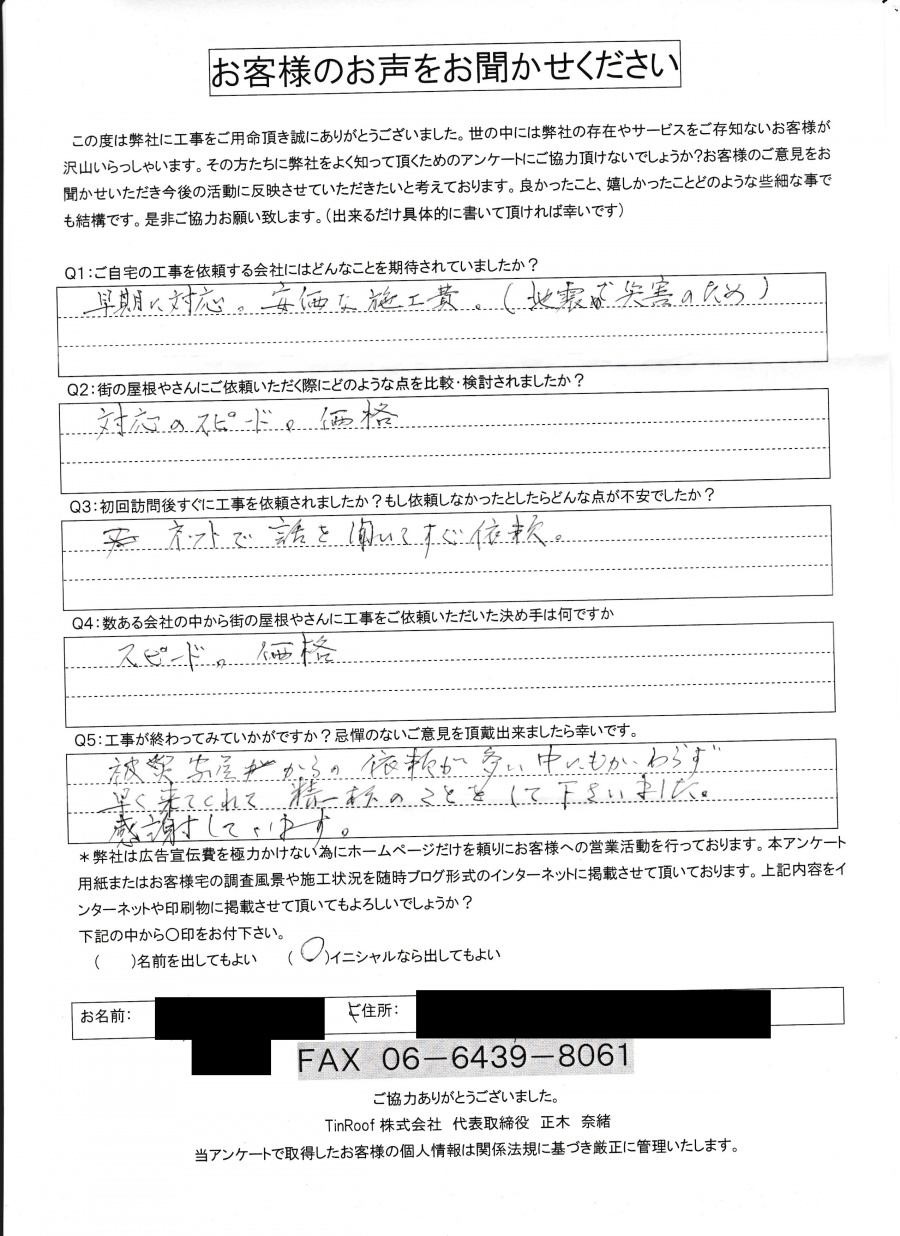 お客様のお声をお聞かせください
この度は弊社に工事をご用命頂き誠にありがとうございました。世の中には弊社の存在やサービスをご存知ないお客様が
沢山いらっしゃいます。その方たちに弊社をよく知って頂くためのアンケートにご協力頂けないでしょうか?お客様のご意見をお
聞かせいただき今後の活動に反映させていただきたいと考えております。良かったこと、嬉しかったことどのような些細な事で
も結構です。是非ご協力お願い致します。(出来るだけ具体的に書いて頂ければ幸いです)
Q1:ご自宅の工事を依頼する会社にはどんなことを期待されていましたか?
早期に対応。安価な施工費。(地震災害のため)
Q2:街の屋根やさんにご依頼いただく際にどのような点を比較・検討されましたか?
対応のスピード。価格
Q3:初回訪問後すぐに工事を依頼されましたか?もし依頼しなかったとしたらどんな点が不安でしたか?
ネットで話を聞いてすぐ依頼。
Q4:数ある会社の中から街の屋根やさんに工事をご依頼いただいた決め手は何ですか
スピード。価格
Q5:工事が終わってみていかがですか?忌憚のないご意見を頂戴出来ましたら幸いです。
被災家屋からの依頼が多い中にもかかわらず
早く来てくれて精一杯のことをして下さいました。
感謝しています。
*弊社は広告宣伝費を極力かけない為にホームページだけを頼りにお客様への営業活動を行っております。本アンケート
用紙またはお客様宅の調査風景や施工状況を随時ブログ形式のインターネットに掲載させて頂いております。上記内容をイ
ンターネットや印刷物に掲載させて頂いてもよろしいでしょうか?
下記の中から〇印をお付下さい。
( )名前を出してもよい (〇)イニシャルなら出してもよい
お名前: ご住所:
FAX 06-6439-8061
ご協力ありがとうございました。
TinRoof株式会社 代表取締役 正木 奈緒
当アンケートで取得したお客様の個人情報は関係法規に基づき厳正に管理いたします。